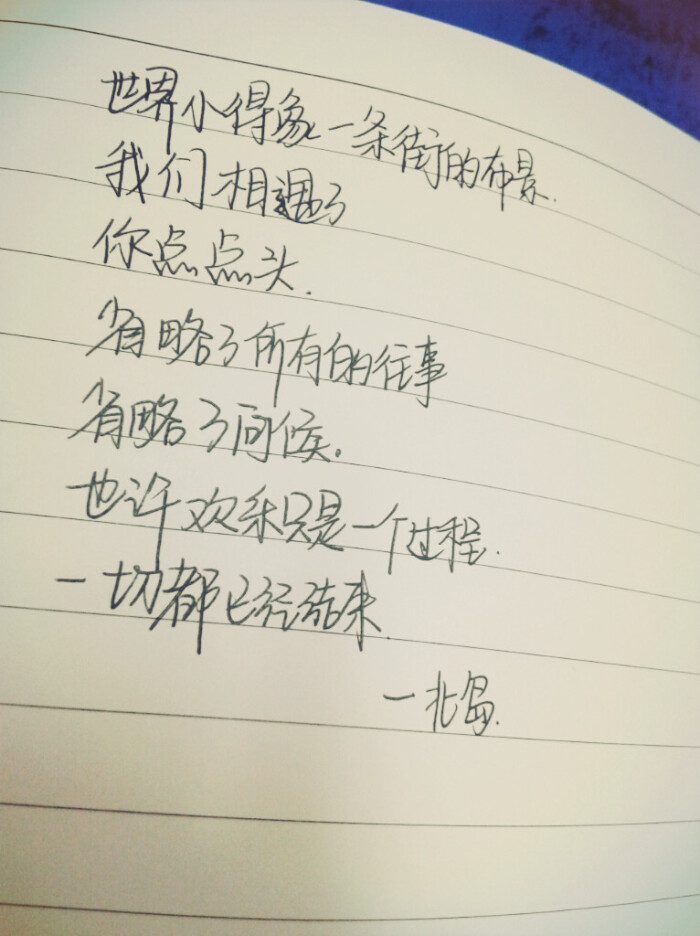 世界小得象一条街的布景.
我们相遇了
你点点头.
省略了所有的往事
省略了问候.
也许欢乐只是一个过程.
一切都已经结束.
—北岛.